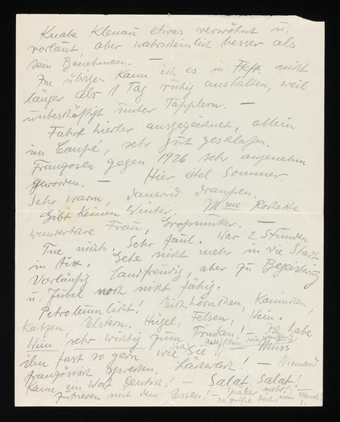 Knabe Klenau etwas verwöhnt u.
vorlaut aber wahrscheinlich besser als
sein Benehmen. —
Im übrigen kann ich es in Fkft. nicht
länger als 1 Tag ruhig aushalten, weil
unbeschäftigt unter Tapplern. —
Fahrt hierher ausgezeichnet, allein
im Coupé, sehr gut geschlafen.
Franzosen gegen 1926 sehr angenehm
geworden. — Hier etel Sommer
Sehr warm, dauernd draussen.
Gibt keinen Winter. Mme
wunderbare Frau, Grossmutter. —
Tue nichts. Sehr faul. War 2 Stunden
in Aix. Gehe nicht mehr in die Stadt
Vorläufig landfreudig, aber zu Begeisterung
u. Jubel noch nicht fähig.
Petroleumlicht! Eichhörnchen, Kaninchen,
Katzen, Elstern, Hügel, Felsen, Wein.
Wein sehr wichtig zum Trinken! — Ich habe
ihn fast so gern wie Sie — Muss
französisch sprechen. Lachhaft! — Niemand
kann ein Wort Deutsch! — Salat Salat!
Zufrieden mit dem Essen! —